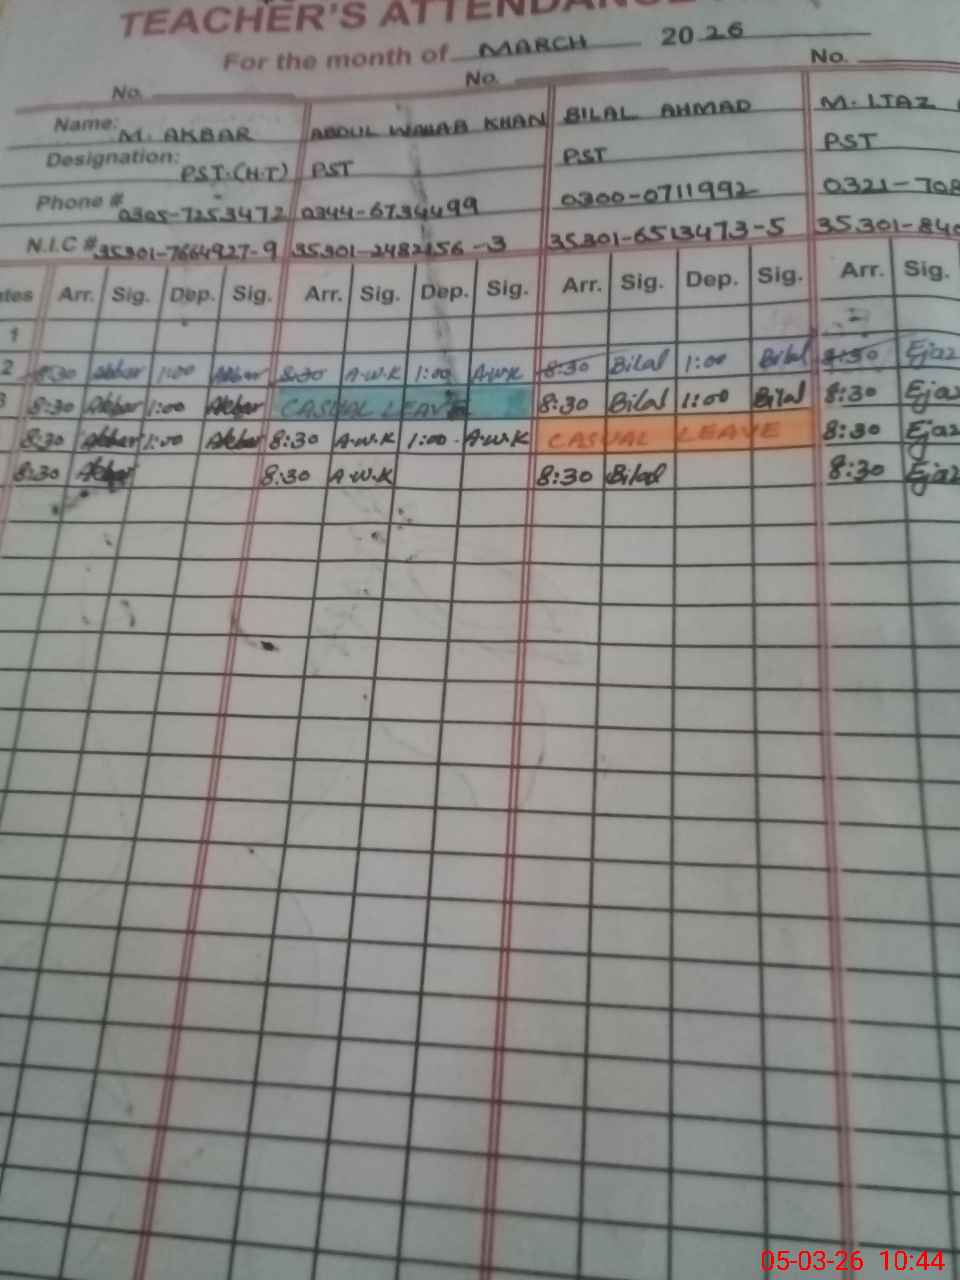 TEACHER'S ATTENDANCE
For the month of MARCH 2026
No. No. No.
Name: M. AKBAR ABDUL WAHAB KHAN BILAL AHMAD M. IJAZ
Designation: P.S.T.(H.T) PST PST PST
Phone # 0305-7253472 0344-6734499 0300-0711992 0321-708
N.I.C # 35301-7664927-9 35301-2482156-3 35301-6513473-5 35301-840
Arr. Sig. Dep. Sig. Arr. Sig. Dep. Sig. Arr. Sig. Dep. Sig. Arr. Sig.
1
2 8:30 Akbar 1:00 Akbar 8:30 A.W.K 1:00 A.W.K 8:30 Bilal 1:00 Bilal 8:30 Ejaz
8:30 Akbar 1:00 Akbar CASUAL LEAVE 8:30 Bilal 1:00 Bilal 8:30 Ejaz
8:30 Akbar 1:00 Akbar 8:30 A.W.K 1:00 A.W.K CASUAL LEAVE 8:30 Ejaz
8:30 Akbar 8:30 A.W.K 8:30 Bilal 8:30 Ejaz
05-03-26 10:44